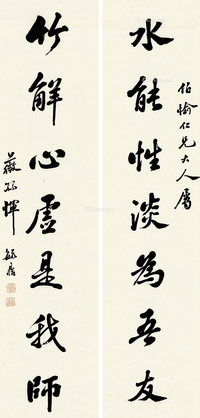 伯愉仁兄大人屬
水能性淡為吾友
竹解心虛是我師
嚴孫惲毓鼎